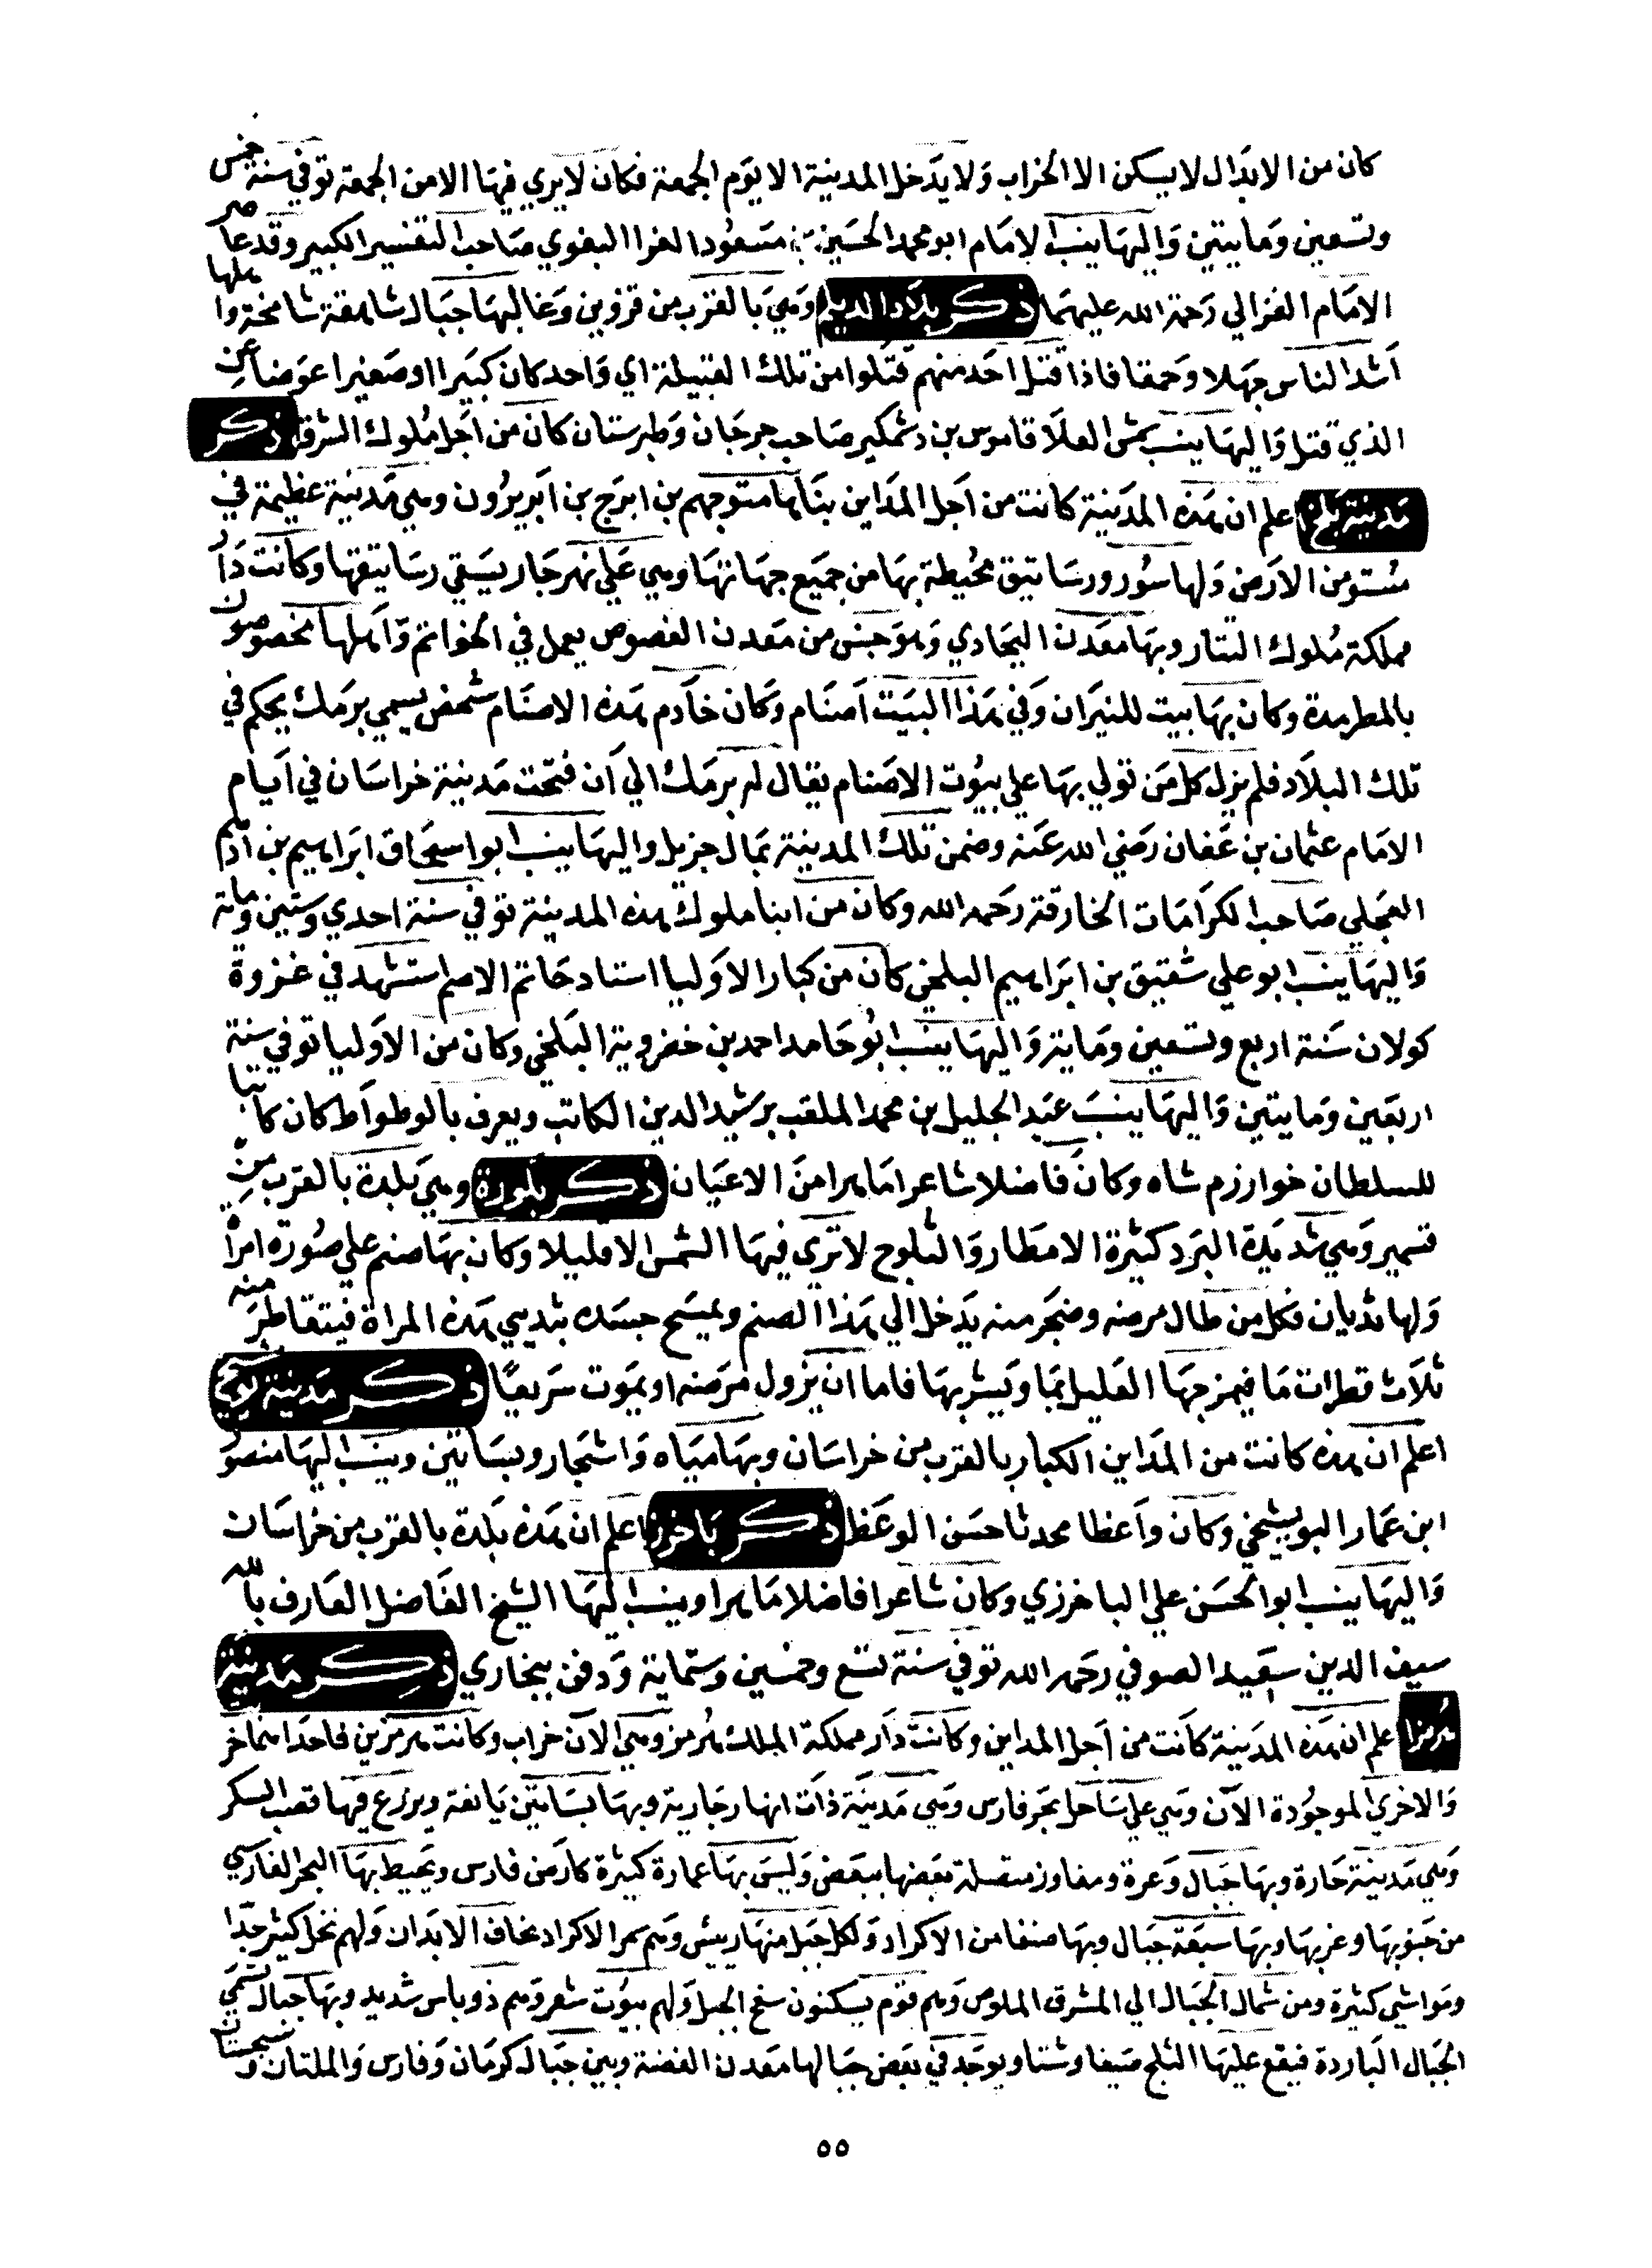 كان من الابدال لا يسكن الا الخراب ولا يدخل المدينة الا يوم الجمعة فكان لا يري فيها الا من الجمعة توفي سنة خمس
وتسعين ومايتين واليها ينسب الامام ابو محمد الحسين بن مسعود الفرا البغوي صاحب التفسير الكبير وقد عاصر
الامام الغزالي رحمة الله عليهما ذكر بلاد الديلم وهي بالقرب من قزوين وغالبها جبال شاهقة شامخة واهلها
اشد الناس جهلا وحمقا فاذا قتل احد منهم قتلوا من تلك القبيلة اي واحد كان كبيرا او صغيرا عوضا عن
الذي قتل واليها ينسب شمس العلا قاموس بن دشمكير صاحب جرجان وطبرستان كان من اجل ملوك الشرق ذكر
مدينة بلخ اعلم ان هذه المدينة كانت من اجل المداين بناها متوجهم بن ابرج بن ابريرون وهي مدينة عظيمة في
مستو من الارض ولها سور ورساتيق محيطة بها من جميع جهاتها وهي علي نهر جار يسقي رساتيقها وكانت دار
مملكة ملوك التتار وبها معدن البجادي وهو جنس من معدن الفصوص يعمل في الخواتم واهلها مخصوصون
بالمطرمدة وكان بها بيت للنيران وفي هذا البيت اصنام وكان خادم هذه الاصنام شخص يسمي برمك يحكم في
تلك البلاد فلم يزل كل من تولي بها علي بيوت الاصنام يقال له برمك الي ان فتحت مدينة خراسان في ايام
الامام عثمان بن عفان رضي الله عنه وضمن تلك المدينة بمال جزيل واليها ينسب ابو اسحاق ابراهيم بن ادهم
العجلي صاحب الكرامات الخارقة رحمه الله وكان من ابنا ملوك هذه المدينة توفي سنة احدي وستين وماتة
واليها ينسب ابو علي شقيق بن ابراهيم البلخي كان من كبار الاوليا استاد حاتم الاصم استشهد في غزوة
كولان سنة اربع وتسعين وماية واليها ينسب ابو حامد احمد بن خضروية البلخي وكان من الاوليا توفي سنة
اربعين ومايتين واليها ينسب عبد الجليل بن محمد الملقب برشيد الدين الكاتب ويعرف بالوطواط كان كاتبا
للسلطان خوارزم شاه وكان فاضلا شاعرا ماهرا من الاعيان ذكر وهي بلدة بالقرب من
قسمير وهي شديدة البرد كثيرة الامطار والثلوج لا تري فيها الشمس الا قليلا وكان بها صنم علي صورة امراة
ولها ثديان فكل من طال مرضه وضجر منه يدخل الي هذا الصنم ويمسح جسده بثديي هذه المراة فيتقاطر منه
ثلاث قطرات ما فيمزجها العليل بما ويشربها فاما ان يزول مرضه او يموت سريعا ذكر مدينة
اعلم ان هذه كانت من المداين الكبار بالقرب من خراسان وبها مياه واشجار وبساتين وينسب اليها منصور
ابن عمار البويشخي وكان واعظا محدثا حسن الوعظ ذكر باخرز اعلم ان هذه بلدة بالقرب من خراسان
واليها ينسب ابو الحسن علي الباخرزي وكان شاعرا فاضلا ماهرا وينسب اليها الشيخ الفاضل العارف بالله
سيف الدين سعيد الصوفي رحمه الله توفي سنة تسع وخمسين وستماية ودفن ببخاري ذكر مدينة
هرمز اعلم ان هذه المدينة كانت من اجل المداين وكانت دار مملكة الملك هرمز وهي الان خراب وكانت هرمزين فاحداهما خر
والاخري الموجودة الآن وهي علي ساحل بحر فارس وهي مدينة ذات انهار جارية وبها بساتين يانعة ويزرع فيها قصب السكر
وهي مدينة حارة وبها جبال وعرة ومفاوز متصلة بعضها ببعض وليس بها عمارة كثيرة كارض فارس ويحيط بها البحر الفارسي
من جنوبها وغربها وبها سبعة جبال وبها صنفا من الاكراد ولكل جبل منها رييس وهم سمر الاكراد نحاف الابدان ولهم نخل كثير جدا
ومواشي كثيرة ومن شمال الجبال الي المشرق الملوص وهم قوم يسكنون سفح الجبل ولهم بيوت شعر وهم ذو باس شديد وبها جبال تسمي
الجبال الباردة فيقع عليها الثلج صيفا وشتا ويوجد في بعض جبالها معدن الفضة وبين جبال كرمان وفارس والملتان وسجستان
٥٥